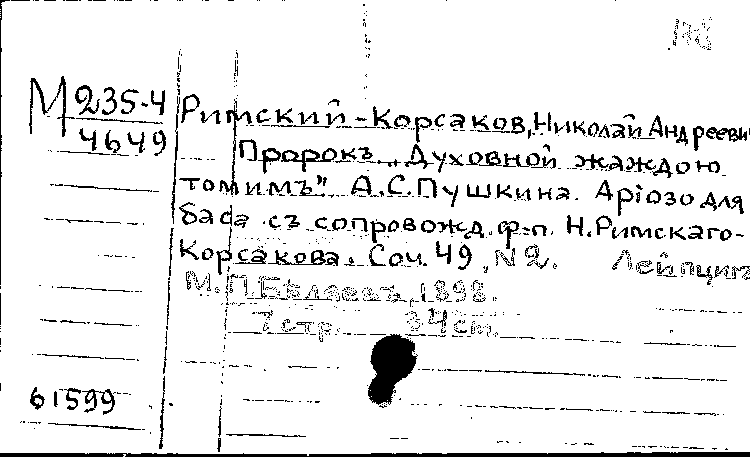 178
М 235-4
4649
Римский-Корсаков, Николай Андрееви
Пророкъ. „Духовной жаждою
томимъ" А.С.Пушкина. Арiозо для
баса съ сопровожд. ф-п. Н.Римскаго-
Корсакова. Соч. 49, N 2. Лейпциг
М.П.Бѣляевъ, 1898.
7 стр. 34 ст.
61599